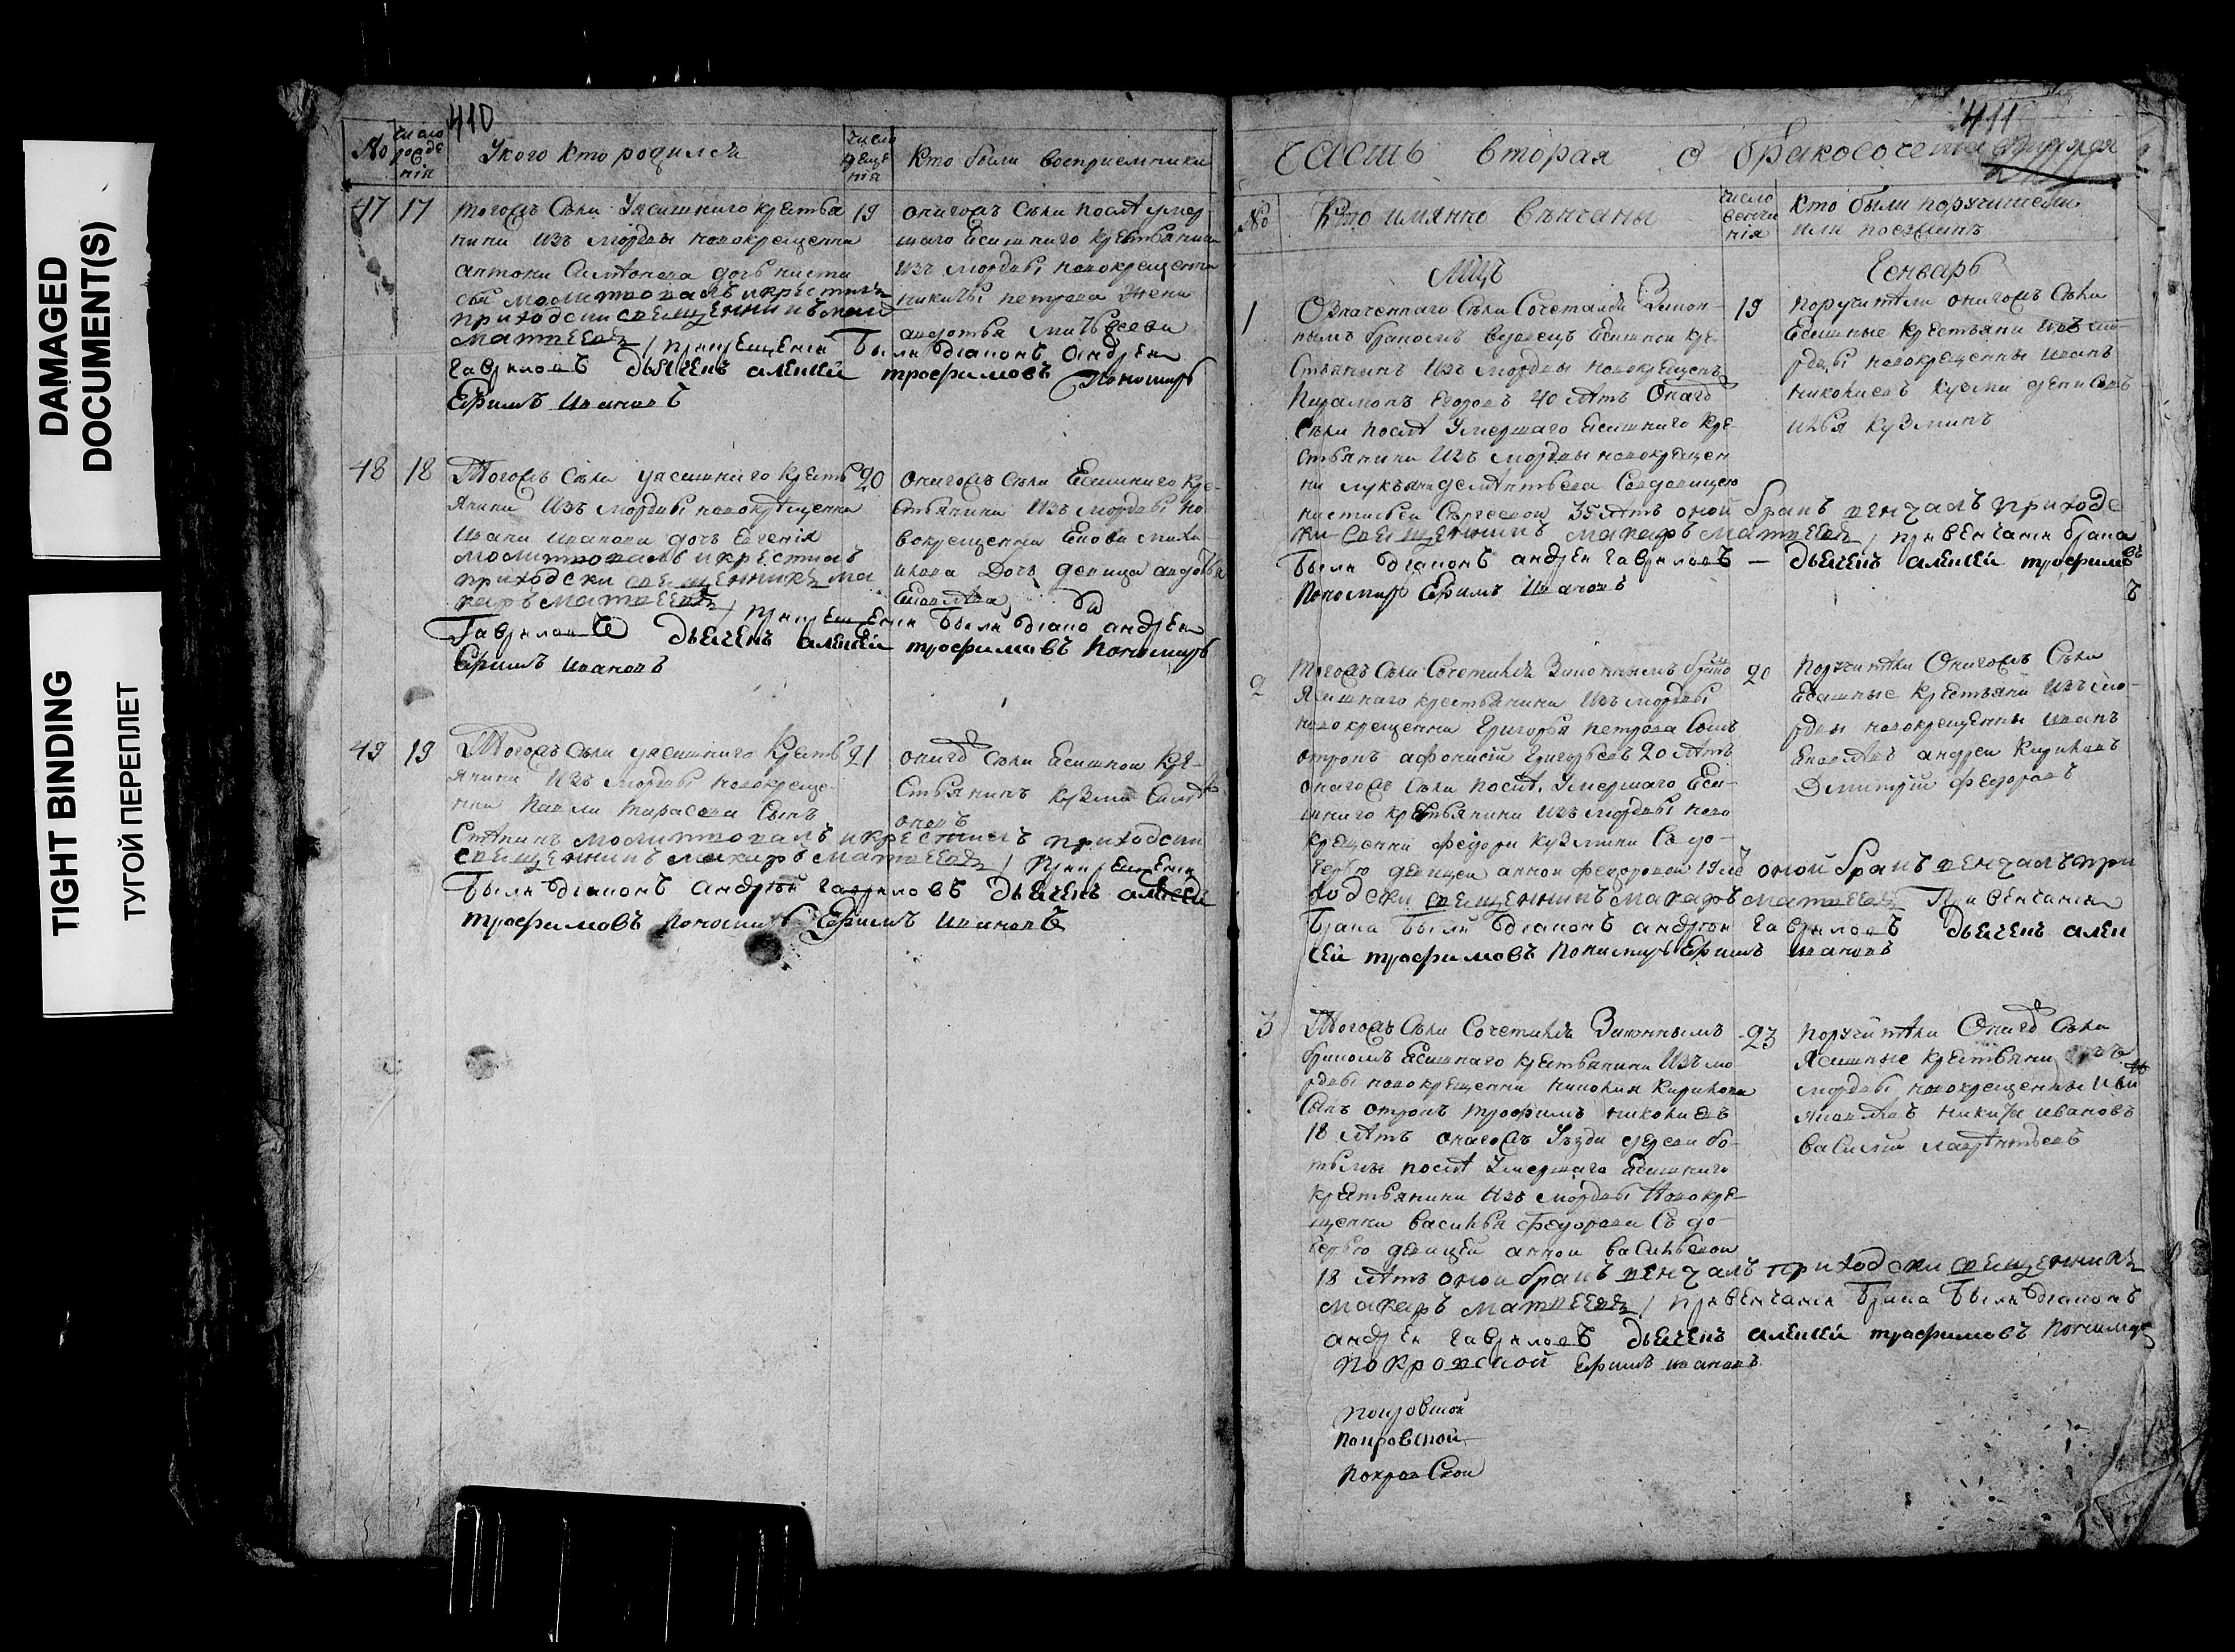 DAMAGED
DOCUMENT(S)
TIGHT BINDING
ТУГОЙ ПЕРЕПЛЕТ
410
No
число
рожде
нія
Укого кто родился
число
креще
нія
Кто были восприемники
47 17
тогожъ Села Уясашнаго крестья
нина изъ мордвы новокрещенна
антона дочь наста
сья молитвовалъ икрестилъ
приходски священникъ мака
матвеевъ / прикрещении были діаконъ андреи
гавриловъ дьячекъ алексей трофимовъ Пономарь
Ефимъ ивановъ
19
онагожъ Села после умер
шаго Есашнаго крестьянина
изъ мордвы новокрещенна
никиты петрова жена
авдотья матвеева
48 18
Тогожъ Села уясашнаго кресть
янина изъ мордвы новокрещенна
ивана иванова дочь Евгенія
молитвовалъ икрестилъ
приходски священникъ ма
каръ матвеевъ / прикрещении были діако андреи
Гавриловъ дьячекъ алексей трофимовъ пономарь
Ефимъ ивановъ
20
онагожъ Села Есашнаго кре
стьянина изъ мордвы но
вокрещенна
дочь девица авдотья
49 19
Тогожъ Села уясашнаго кресть
янина изъ мордвы новокреще
нна павла тарасова сынъ
молитвовалъ икрестилъ приходски
священникъ макаръ матвеевъ / прикрещении
были діаконъ андрей гавриловъ дьячекъ алексей
трофимовъ пономарь Ефимъ ивановъ
21
онаго Села Есашнои кре
стьянинъ кузма
411
Часть вторая о бракосоче
No
Кто имянно венчаны
число
венча
нія
Кто были поручители
или поезжанъ
Мцъ
Генварь
1
Означеннаго Села Сочетался Закон
нымъ бракомъ вдовецъ Есашнои кре
стьянинъ изъ мордвы новокрещенъ
Парамонъ Егоровъ 40 летъ Онаго
Села после Умершаго Есашнаго кре
стьянина изъ мордвы новокрещен
на лукьяна Совдовицею
настасьеи Сергеевои 35 летъ оной бракъ венчалъ приходс
ки священникъ макаръ матвеевъ / привенчании брака
были діаконъ андреи гавриловъ — дьячекъ алексей трофимов
ъ
Пономарь Ефимъ ивановъ
19
поручители онагожъ Села
Есашные крестьяни изъ мо
рдвы новокрещенны иванъ
николаевъ кузма денисовъ
илья кузминъ
2
тогожъ Села Сочетался Законнымъ брако
Ясашнаго крестьянина изъ мордвы
новокрещенна Григорья петрова Сынъ
отрокъ афонасій Григорьевъ 20 летъ
онагожъ Села после Умершаго Еса
шнаго крестьянина изъ мордвы ново
крещенна федора кузмина Съ до
черью девицеи аннои федоровои 19 ле оной бракъ венчалъ при
ходски священникъ макаръ матвеевъ При венчании
брака были діаконъ андреи гавриловъ дьячекъ алек
сей трофимовъ пономарь Ефимъ ивановъ
20
поручители Онагожъ Села
Есашные крестьяни изъ мо
рдвы новокрещенны иванъ
андреи кириловъ
Дмитрій федоровъ
3
Тогожъ Села Сочетался Законнымъ
бракомъ Есашнаго крестьянина изъ мо
рдвы новокрещенна николая кирилова
Сынъ отрокъ трофимъ николаевъ
18 летъ онагожъ Уезда деревни бо
после Умершаго Есашнаго
крестьянина изъ мордвы новокре
щенна василья федорова Съ до
черью девицеи аннои васильевои
18 летъ оной бракъ венчалъ приходски священникъ
макаръ матвеевъ / привенчании брака были діаконъ
андреи гавриловъ дьячекъ алексей трофимовъ пономарь
покровской Ефимъ ивановъ
покровской
покровской
покровской
23
поручители Онаго Села
Ясашные крестьяни изъ
мордвы новокрещенны
никита ивановъ
василій лаврентьевъ